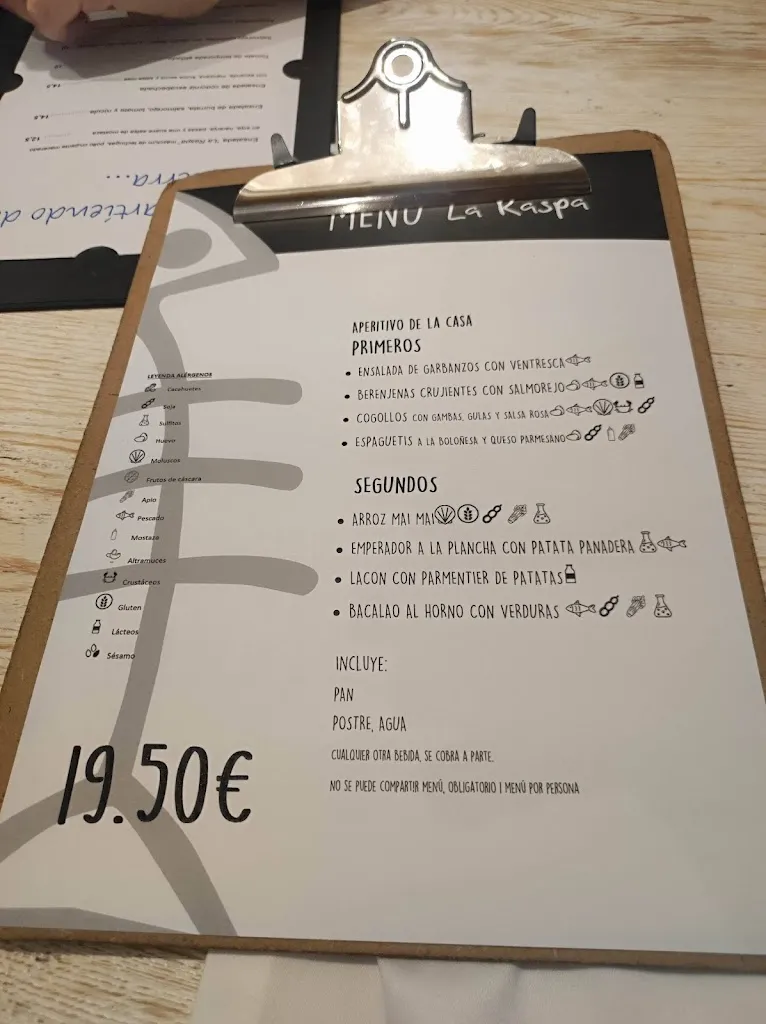 MENÚ La Kaspa
APERITIVO DE LA CASA
PRIMEROS
• ENSALADA DE GARBANZOS CON VENTRESCA
• BERENJENAS CRUJIENTES CON SALMOREJO
• COGOLLOS CON GAMBAS, GULAS Y SALSA ROSA
• ESPAGUETIS A LA BOLOÑESA Y QUESO PARMESANO
SEGUNDOS
• ARROZ MAI MAI
• EMPERADOR A LA PLANCHA CON PATATA PANADERA
• LACON CON PARMENTIER DE PATATAS
• BACALAO AL HORNO CON VERDURAS
INCLUYE:
PAN
POSTRE, AGUA
CUALQUIER OTRA BEBIDA, SE COBRA A PARTE.
NO SE PUEDE COMPARTIR MENÚ, OBLIGATORIO 1 MENÚ POR PERSONA
LEYENDA ALÉRGENOS
Cacahuetes
Soja
Sulfitos
Huevo
Moluscos
Frutos de cáscara
Apio
Pescado
Mostaza
Altramuces
Crustáceos
Gluten
Lácteos
Sésamo
19.50€
artiendo d
erra...
Ensalada de burrata, salmorejo, tomate y rúcula
Ensalada de codorniz escabechada